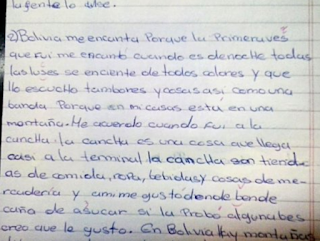 la gente lo dice.
e) Bolivia me encanta Porque la Primeraves
que fui me encantó cuando es denoche todas
las luses se enciente de todos colores y que
lo escucho tambores y cosas asi como una
banda Porque en mi casas esta en una
montaña. Me acuerdo cuando fui a la
cancha: la cancha es una cosa que llega
casi a la terminal la cancha son tiendic
as de comida, ropa, bebidas y cosas de me-
rcaderia y ami me gusto donde bende
caña de asucar si la Probo algunabes
creo que le gusto. En Bolivia Hay montañas